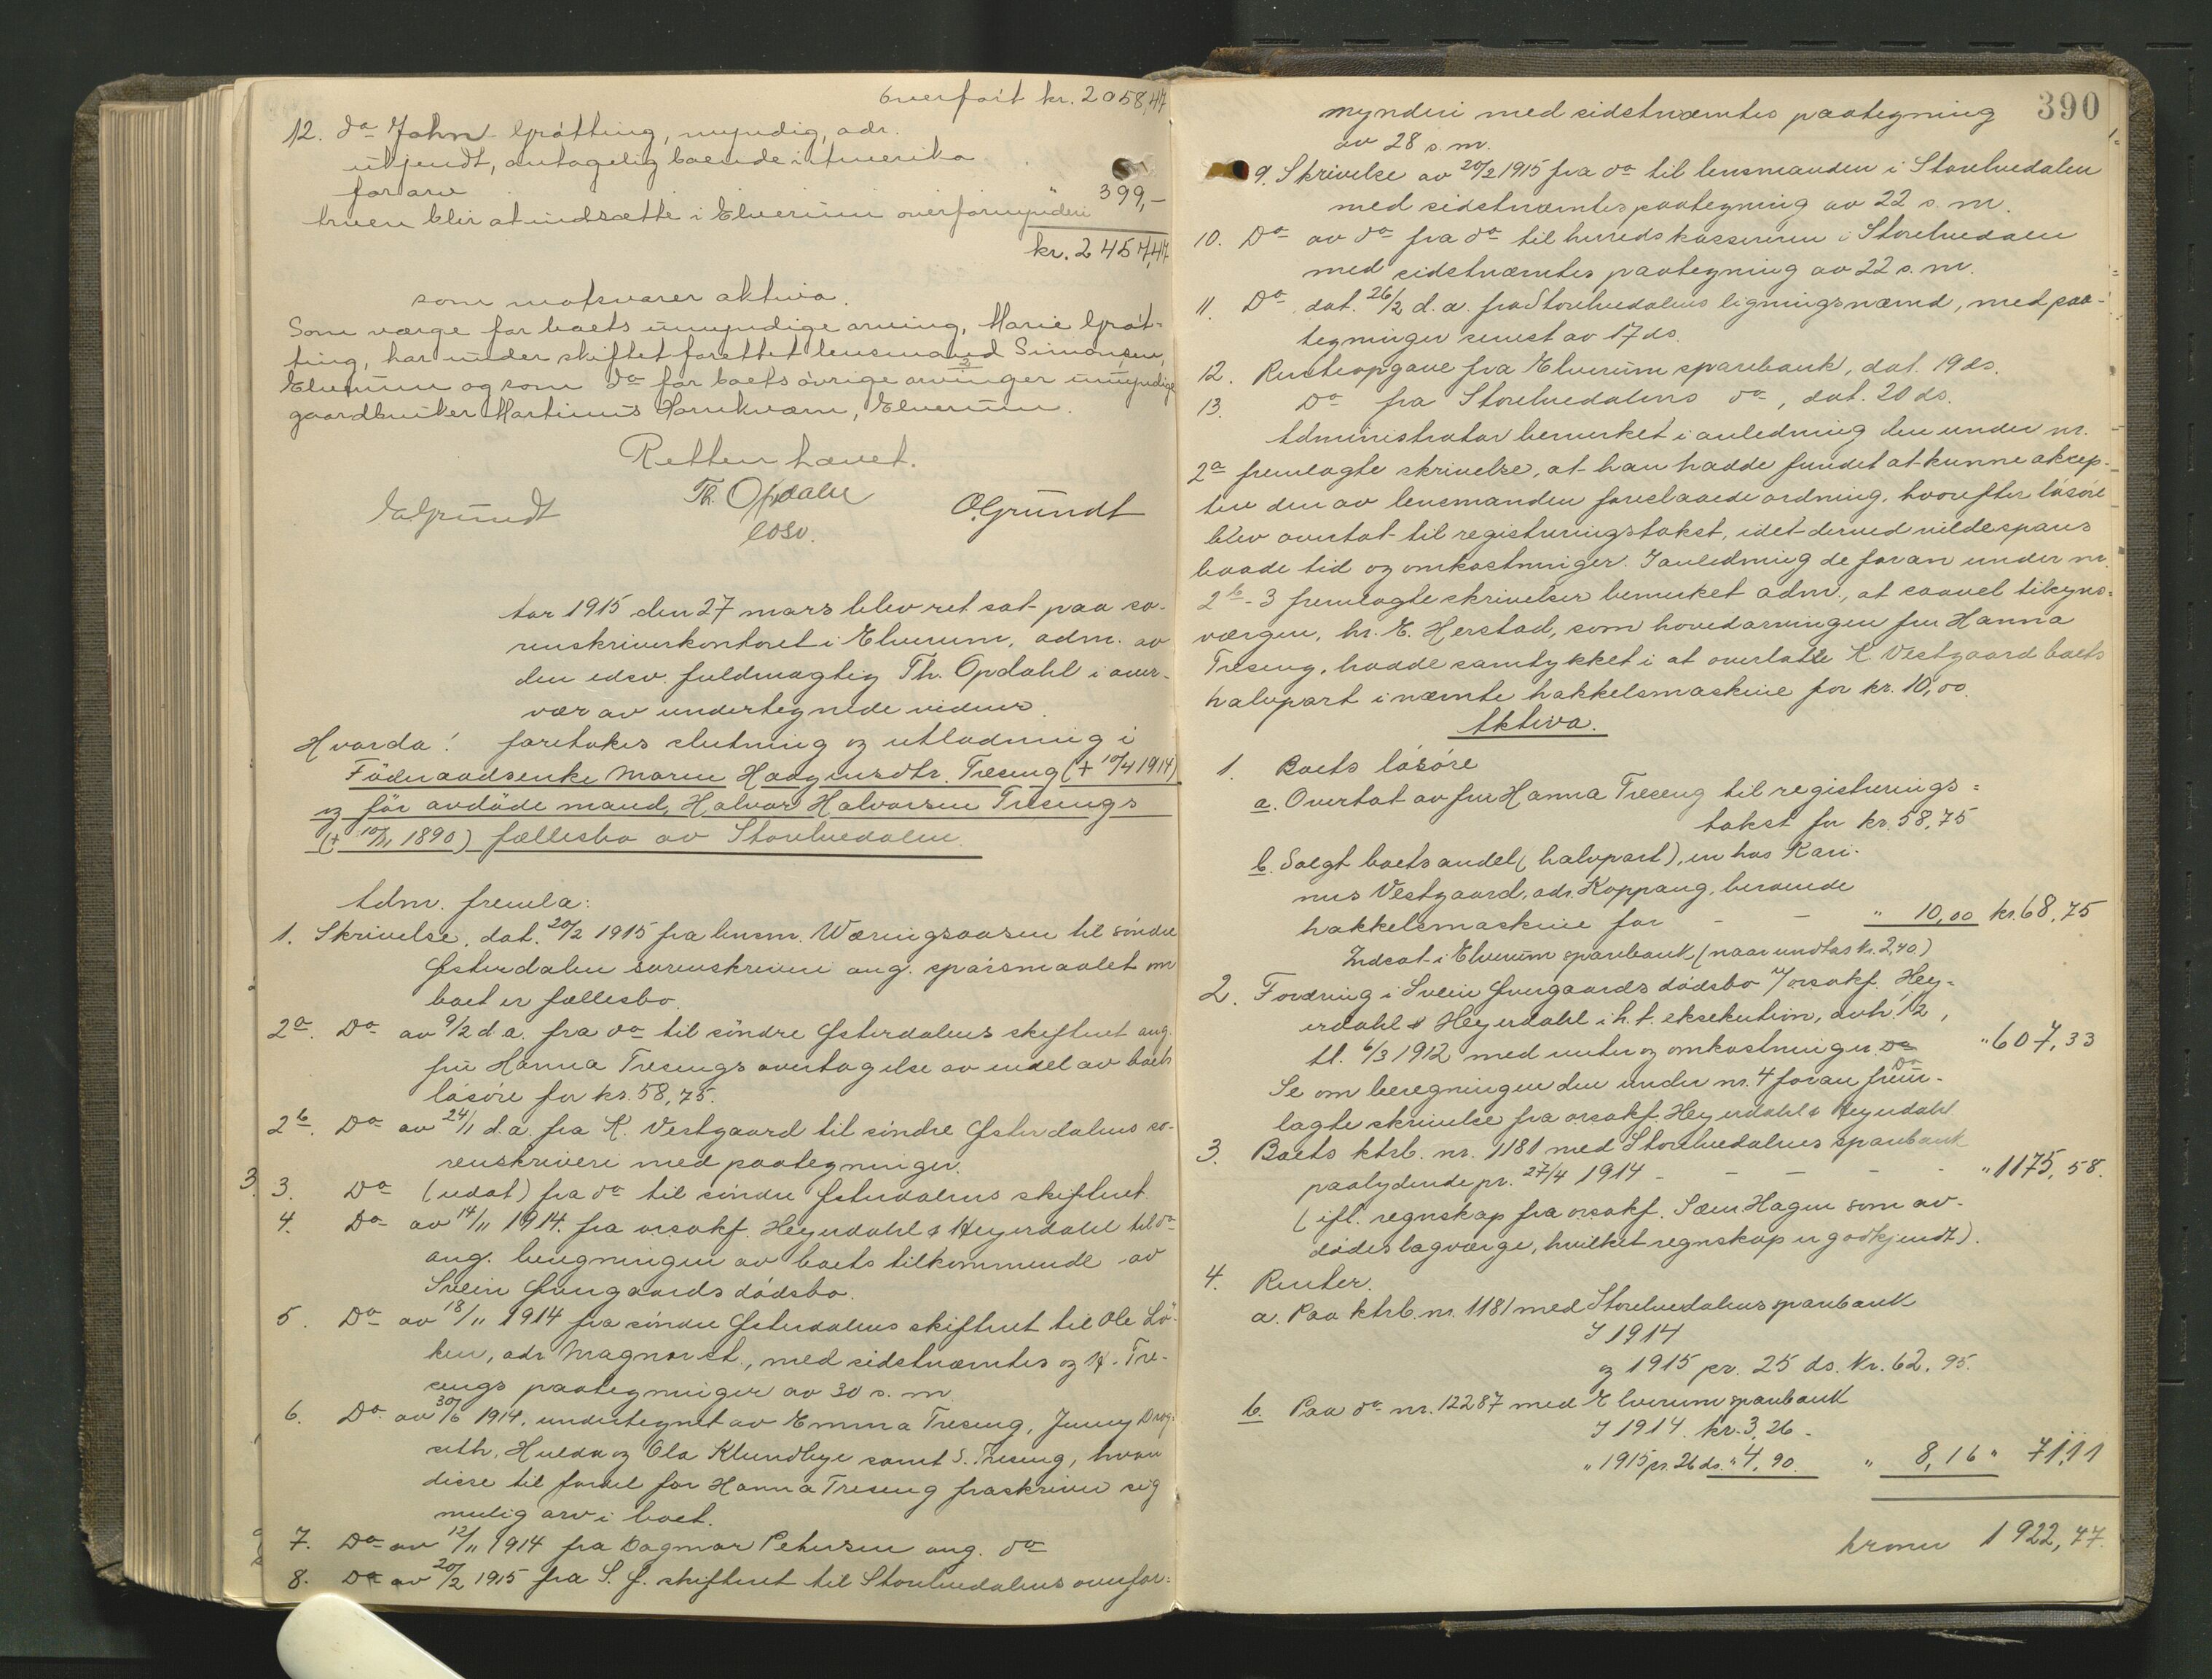 Overført kr. 2058,47
12. do John Grøtting, myndig, adr.
ukjendt, antagelig boende i Amerika
for arv " 399,-
Arven blir at indsætte i Elverum overformynderi
kr. 2457,47
som motsvarer aktiva.
Som værge for boets umyndige arving, Marie Grøt-
ting, har under skiftet forettet lensmand Simonsen,
Elverum og som do for boets øvrige arvinger umyndige
gaardbruker Martinus Hornkværn, Elverum.
Retten hævet.
Th. Opdahl
O. Grundt
Aar 1915 den 27 mars blev ret sat paa so-
renskriverkontoret i Elverum, adm. av
den edsv. fuldmægtig Th. Opdahl i over-
vær av undertegnede vidner.
Hvorda: foretokes slutning og utlodning i
Føderaadsenke Maren Haagensdtr. Træseng († 10/4 1914)
og før avdøde mand, Halvor Halvorsen Træsengs
(† 10/11 1890) fællesbo av Storelvedalen.
Adm. fremla:
1. Skrivelse, dat. 20/2 1915 fra lensm. Wæringsaasen til søndre
Østerdalen sorenskriveri ang. spørsmaalet om
boet er fællesbo.
2a. Do av 9/2 d.a. fra do til søndre Østerdalens skifteret ang.
fru Hanna Træsengs overtagelse av endel av boets
løsøre for kr. 58,75.
2b. Do av 24/1 d.a. fra K. Vestgaard til søndre Østerdalens so-
renskriveri med paategninger.
3. 3. Do (udat) fra do til søndre Østerdalens skifteret.
4. Do av 14/11 1914 fra orsakf. Heyerdahl & Heyerdahl til do
ang. beregningen av boets tilkommende av
Svein Øvergaards dødsbo.
5. Do av 18/11 1914 fra søndre Østerdalens skifteret til Ole Lø-
ken, adr Magnor st., med sidstnævntes og H. Træ-
sengs paategninger av 30 s. m.
6. Do av 30/6 1914, undertegnet av Emma Træseng, Jenny Drog-
seth, Hulda og Ola Klundbye samt S. Træseng, hvor
disse til fordel for Hanna Træseng fraskriver sig
mulig arv i boet.
7. Do av 12/11 1914 fra Dagmar Petersen ang. do
8. Do av 20/2 1915 fra S. Ø. skifteret til Storelvedalens overfor-
390
mynderi med sidstnævntes paategning
av 28 s. m.
9. Skrivelse av 20/2 1915 fra do til lensmanden i Storelvedalen
med sidstnævntes paategning av 22 s. m.
10. Do av do fra do til herredskassereren i Storelvedalen
med sidstnævntes paategning av 22 s. m.
11. Do dat. 26/2 d.a. fra Storelvedalens ligningsnævnd, med paa-
tegninger senest av 17 ds.
12. Renteopgave fra Elverum sparebank, dat. 19 ds.
13. Do fra Storelvedalens do, dat. 20 ds.
Administrator bemerket i anledning den under nr.
2a fremlagte skrivelse, at han hadde fundet at kunne aksep-
tere den av lensmanden foreslaaede ordning, hvorefter løsøre
blev overtat til registreringstakst, idet derved vilde spares
baade tid og omkostninger. I anledning de foran under nr.
2b-3 fremlagte skrivelser bemerket adm., at saavel tilsyns-
værgen, hr. E. Herstad, som hovedarvingen fru Hanna
Træseng, hadde samtykket i at overlatte K. Vestgaard boets
halvpart i nævnte hakkelsmaskine for kr. 10,00.
Aktiva.
1. Boets løsøre
a. Overtat av fru Hanna Træseng til registrerings-
takst for kr. 58,75
b. Solgt boets andel (halvpart), en hos Kari-
nus Vestgaard, adr. Koppang, beroende
hakkelsmaskine for - - " 10,00 kr. 68,75
Indsat i Elverum sparebank (naar undtas kr. 2,40)
2. Fordring i Svein Øvergaards dødsbo v/orsakf. Hey-
erdahl & Heyerdahl i h. t. eksekution, avh. 1/2,
tl. 6/3 1912 med renter og omkostninger. Do "607,33
Se om beregningen den under nr. 4 foran frem-
lagte skrivelse fra orsakf. Heyerdahl & Heyerdahl
3. Boets ktrb. nr. 1181 med Storelvedalens sparebank
paalydende pr. 27/4 1914 - - - - "1175,58.
(ifl. regnskap fra orsakf. Sæm Hagen som av-
dødes lagværge, hvilket regnskap er godkjendt).
4. Renter.
a. Paa ktrb. nr. 1181 med Storelvedalens sparebank
I 1914
og 1915 pr. 25 ds. kr. 62,95.
b. Paa do nr. 12287 med Elverum sparebank
I 1914 kr. 3,26 -
" 1915 pr. 26 ds. " 4,90. " 8,16 " 71,11
kroner 1922,77.